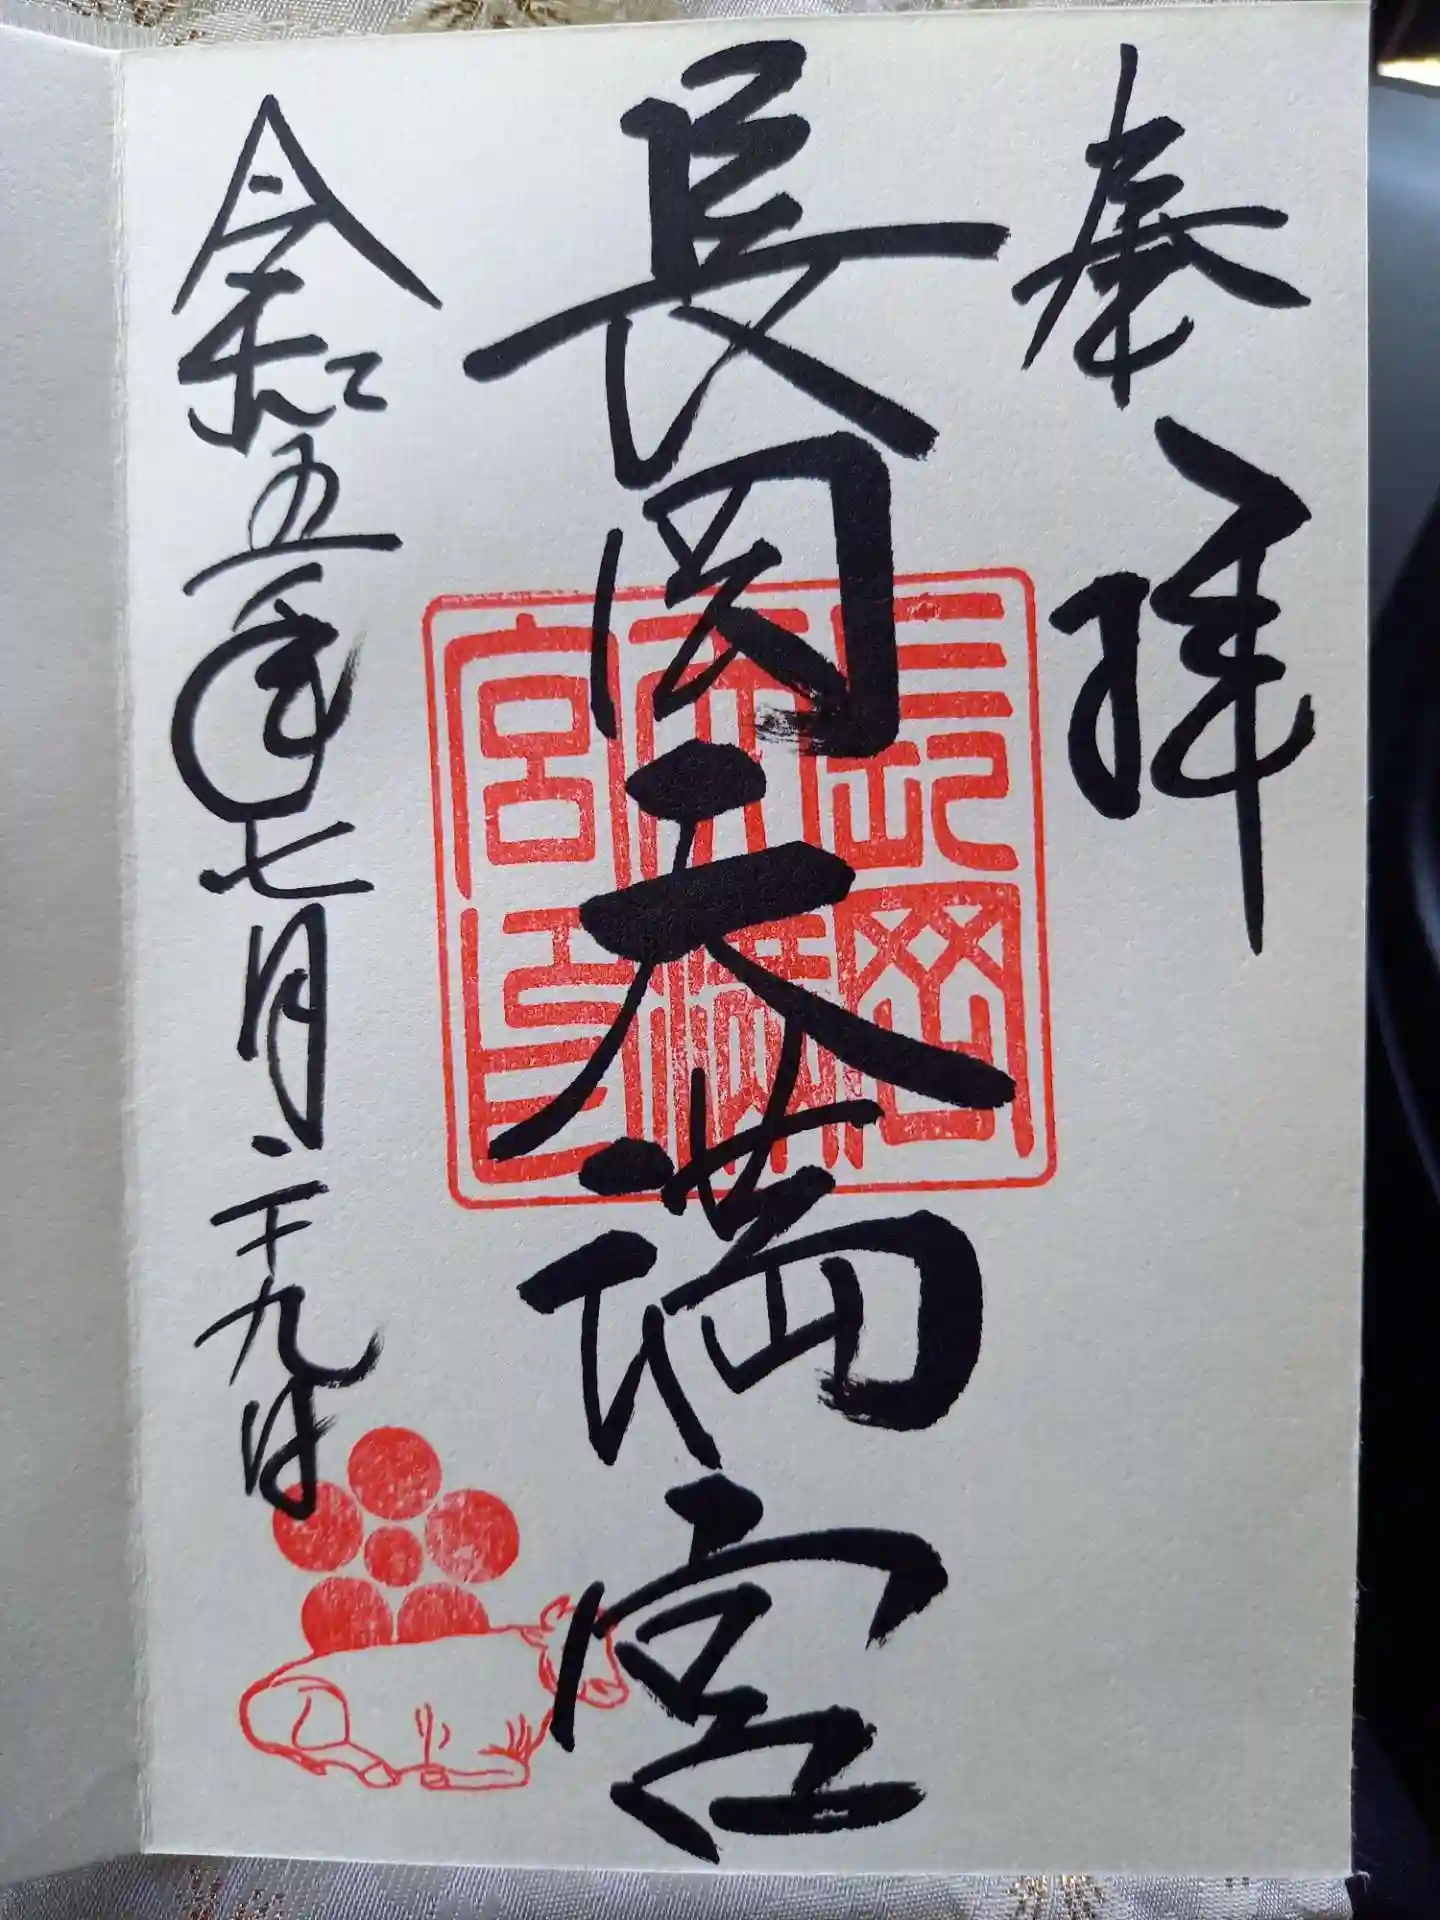 奉拝
長岡天満宮
長岡天満宮印
令和五年七月二十九日